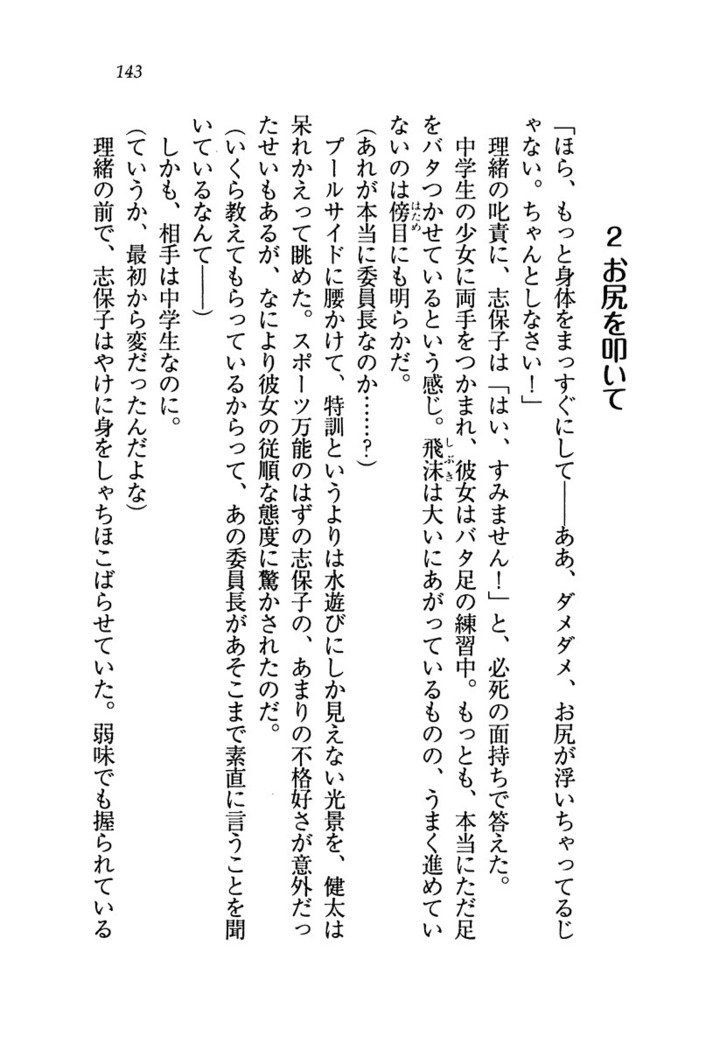 143
2 お尻を叩いて
「ほら、もっと身体をまっすぐにして――ああ、ダメダメ、お尻が浮いちゃってるじ
ゃない。ちゃんとしなさい！」
理緒の叱責に、志保子は「はい、すみません！」と、必死の面持ちで答えた。
中学生の少女に両手をつかまれ、彼女はバタ足の練習中。もっとも、本当にただ足
をバタつかせているという感じ。飛沫は大いにあがっているものの、うまく進めてい
しぶき
ないのは傍目にも明らかだ。
はため
（あれが本当に委員長なのか……？）
プールサイドに腰かけて、特訓というよりは水遊びにしか見えない光景を、健太は
呆れかえって眺めた。スポーツ万能のはずの志保子の、あまりの不格好さが意外だっ
たせいもあるが、なにより彼女の従順な態度に驚かされたのだ。
（いくら教えてもらっているからって、あの委員長があそこまで素直に言うことを聞
いているなんて――）
しかも、相手は中学生なのに。
（ていうか、最初から変だったんだよな）
理緒の前で、志保子はやけに身をしゃちほこばらせていた。弱味でも握られている